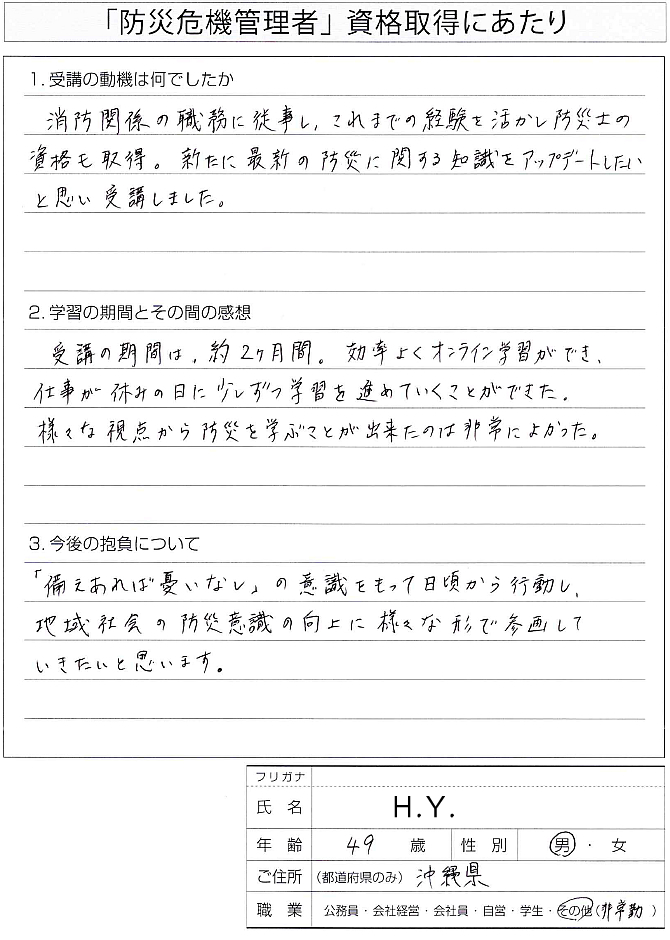 「防災危機管理者」資格取得にあたり
1. 受講の動機は何でしたか
消防関係の職務に従事し、これまでの経験を活かし防災士の
資格も取得。新たに最新の防災に関する知識をアップデートしたい
と思い受講しました。
2. 学習の期間とその間の感想
受講の期間は、約2ヶ月間。効率よくオンライン学習ができ、
仕事が休みの日に少しずつ学習を進めていくことができた。
様々な視点から防災を学ぶことが出来たのは非常によかった。
3. 今後の抱負について
「備えあれば憂いなし」の意識をもって日頃から行動し、
地域社会の防災意識の向上に様々な形で参画して
いきたいと思います。
フリガナ
氏名 H.Y.
年齢 49 歳 性別 男・女
ご住所 (都道府県のみ) 沖縄県
職業 公務員・会社経営・会社員・自営・学生・その他(非常勤)